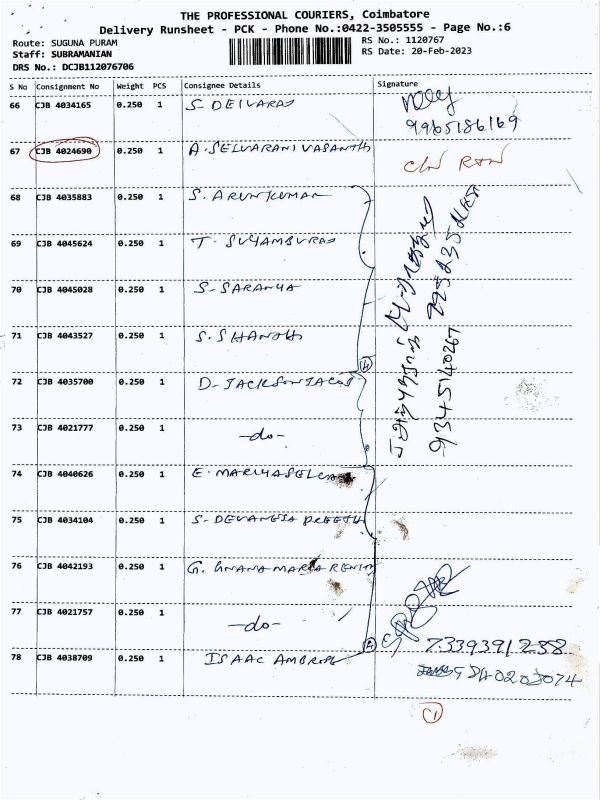 THE PROFESSIONAL COURIERS, Coimbatore
Delivery Runsheet - PCK - Phone No.:0422-3505555 - Page No.:6
Route: SUGUNA PURAM
Staff: SUBRAMANIAN
DRS No.: DCJB112076706
RS No.: 1120767
RS Date: 20-Feb-2023
S No Consignment No Weight PCS Consignee Details Signature
66 CJB 4034165 0.250 1 S. DEIVARAJ
9965186169
67 CJB 4024690 0.250 1 A. SELVARANI VASANTH
68 CJB 4035883 0.250 1 S. ARUNKUMAR
69 CJB 4045624 0.250 1 T. SUYAMBURAJ
70 CJB 4045028 0.250 1 S. SARANYA
71 CJB 4043527 0.250 1 S. SHANTHI
72 CJB 4035700 0.250 1 D. JACKSON JACOB
73 CJB 4021777 0.250 1 -do-
9345140267
74 CJB 4040626 0.250 1
75 CJB 4034104 0.250 1
76 CJB 4042193 0.250 1 G. GNANA MARIA
77 CJB 4021757 0.250 1 -do-
7339391238
78 CJB 4038709 0.250 1 ISAAC AMBROSE